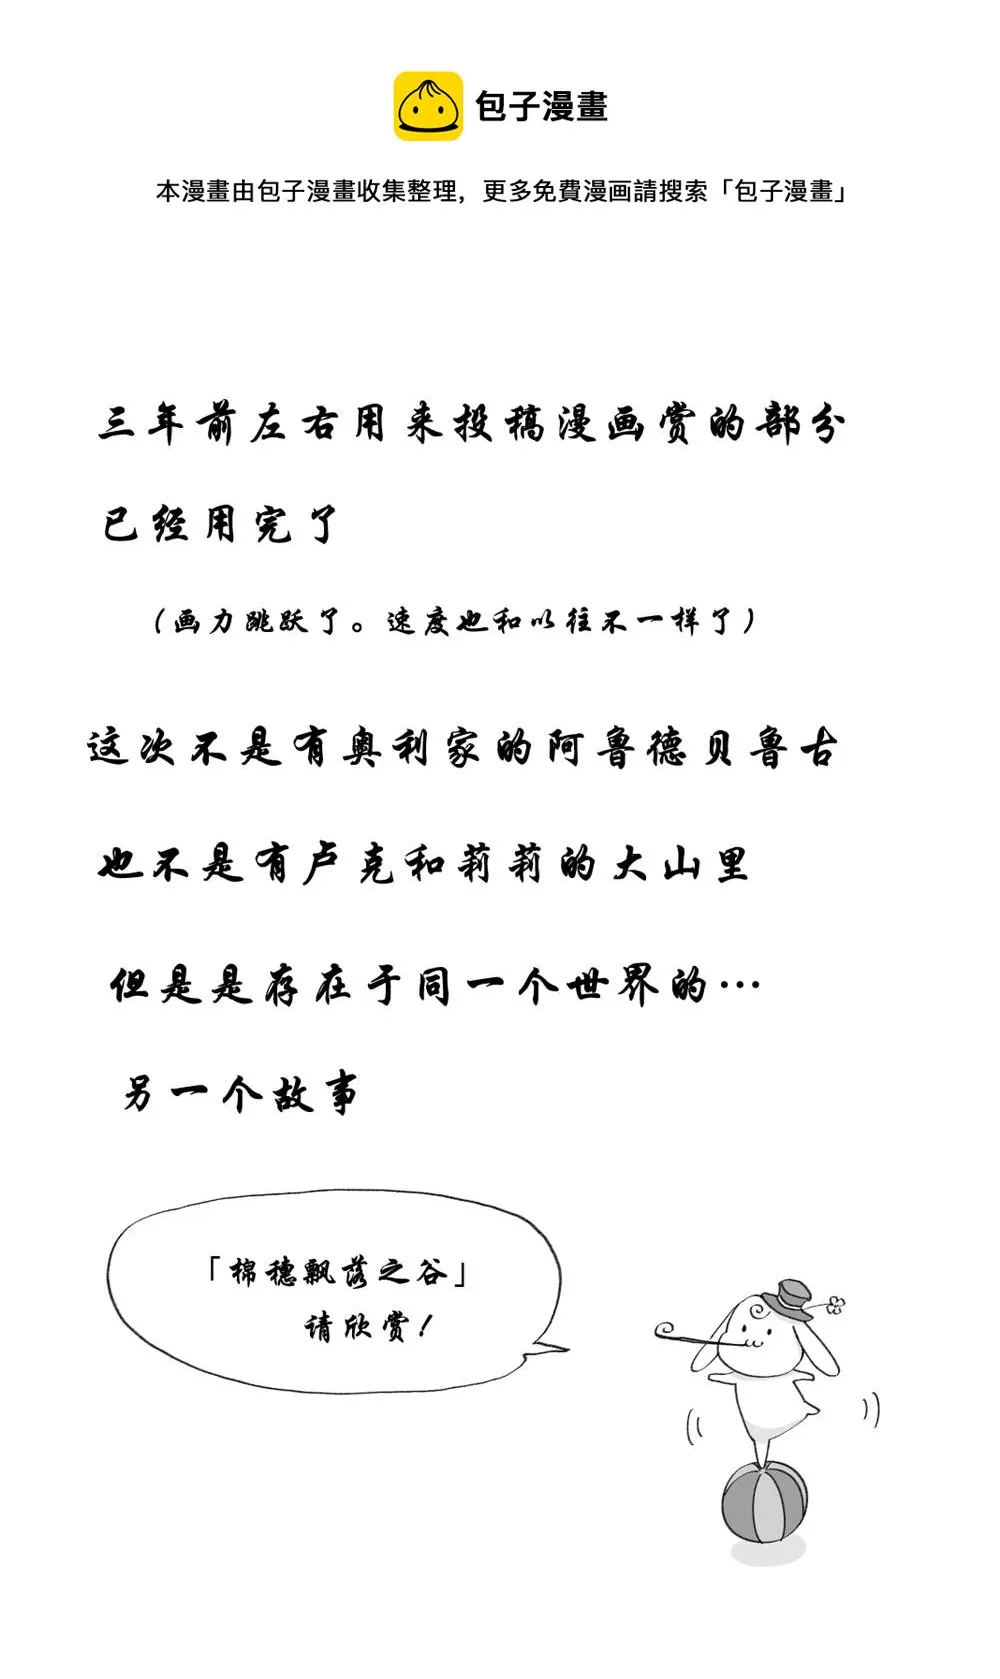 包子漫畫
本漫畫由包子漫畫收集整理，更多免費漫画請搜索「包子漫畫」
三年前左右用来投稿漫画赏的部分
已经用完了
（画力跳跃了。速度也和以往不一样了）
这次不是有奥利家的阿鲁德贝鲁古
也不是有卢克和莉莉的大山里
但是是存在于同一个世界的…
另一个故事
「棉穗飘落之谷」
请欣赏！